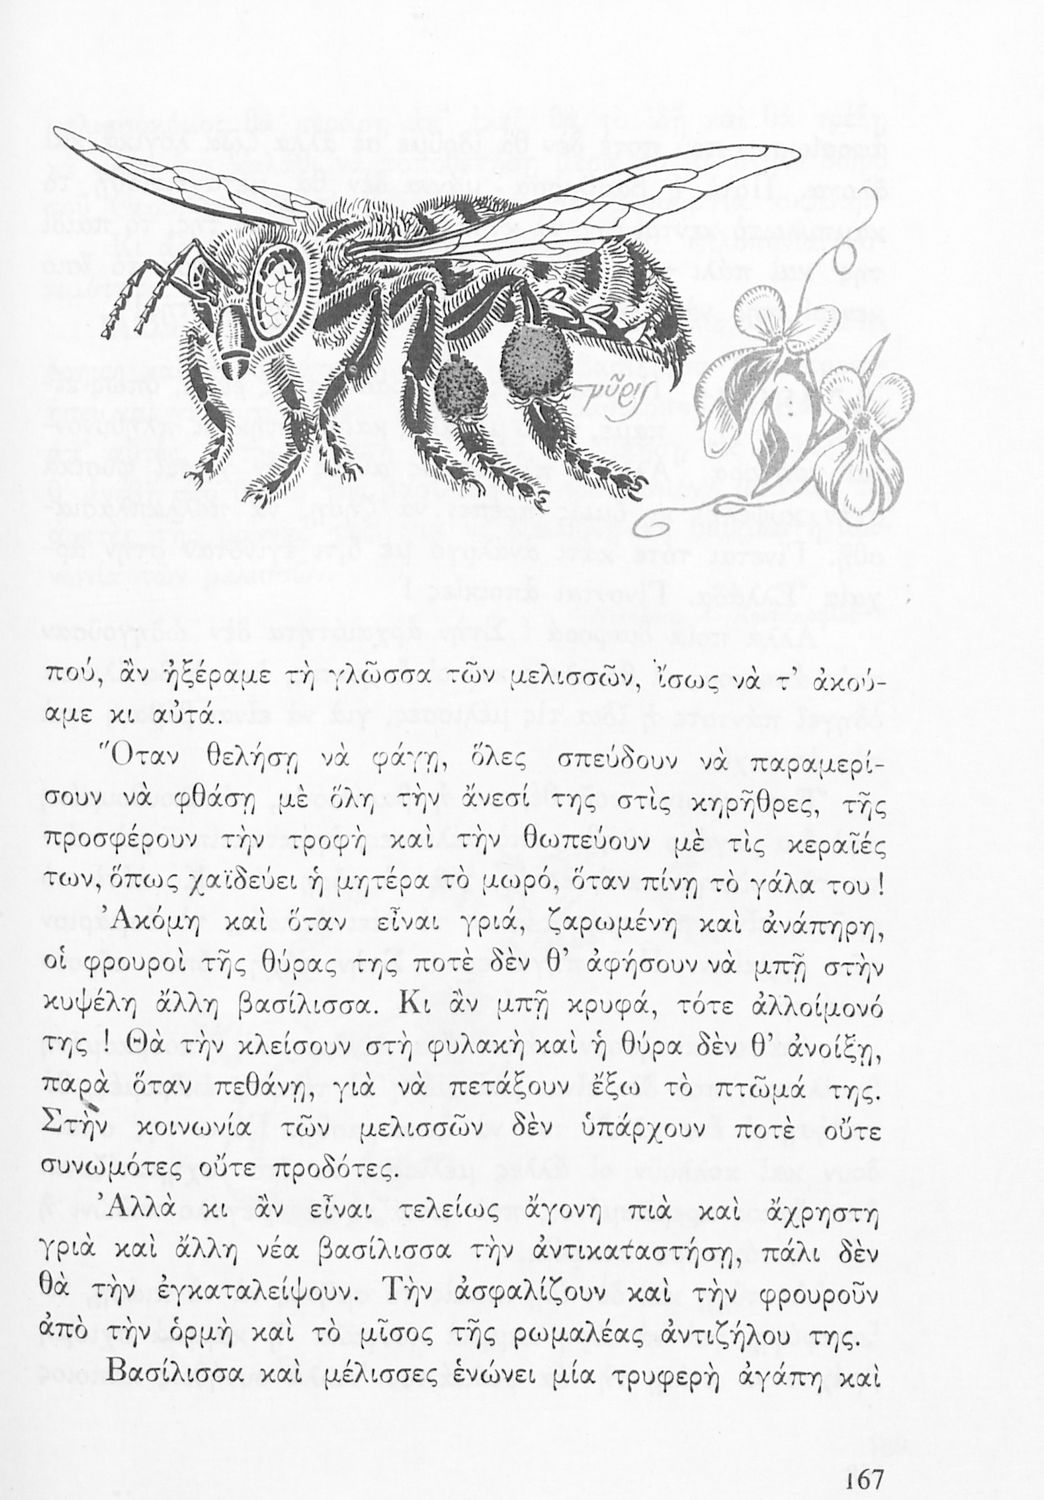 γῦρις
πού, ἂν ἠξέραμε τὴ γλῶσσα τῶν μελισσῶν, ἴσως νὰ τ’ ἀκού-
αμε κι αὐτά.
Ὅταν θελήσῃ νὰ φάγῃ, ὅλες σπεύδουν νὰ παραμερί-
σουν νὰ φθάσῃ μὲ ὅλη τὴν ἄνεσί της στὶς κηρῆθρες, τῆς
προσφέρουν τὴν τροφὴ καὶ τὴν θωπεύουν μὲ τὶς κεραῖές
των, ὅπως χαϊδεύει ἡ μητέρα τὸ μωρό, ὅταν πίνῃ τὸ γάλα του !
Ἀκόμη καὶ ὅταν εἶναι γριά, ζαρωμένη καὶ ἀνάπηρη,
οἱ φρουροὶ τῆς θύρας της ποτὲ δὲν θ’ ἀφήσουν νὰ μπῇ στὴν
κυψέλη ἄλλη βασίλισσα. Κι ἂν μπῇ κρυφά, τότε ἀλλοίμονό
της ! Θὰ τὴν κλείσουν στὴ φυλακὴ καὶ ἡ θύρα δὲν θ’ ἀνοίξῃ,
παρὰ ὅταν πεθάνῃ, γιὰ νὰ πετάξουν ἔξω τὸ πτῶμά της.
Στὴν κοινωνία τῶν μελισσῶν δὲν ὑπάρχουν ποτὲ οὔτε
συνωμότες οὔτε προδότες.
Ἀλλὰ κι ἂν εἶναι τελείως ἄγονη πιὰ καὶ ἄχρηστη
γριὰ καὶ ἄλλη νέα βασίλισσα τὴν ἀντικαταστήσῃ, πάλι δὲν
θὰ τὴν ἐγκαταλείψουν. Τὴν ἀσφαλίζουν καὶ τὴν φρουροῦν
ἀπὸ τὴν ὁρμὴ καὶ τὸ μῖσος τῆς ρωμαλέας ἀντιζήλου της.
Βασίλισσα καὶ μέλισσες ἑνώνει μία τρυφερὴ ἀγάπη καὶ
167